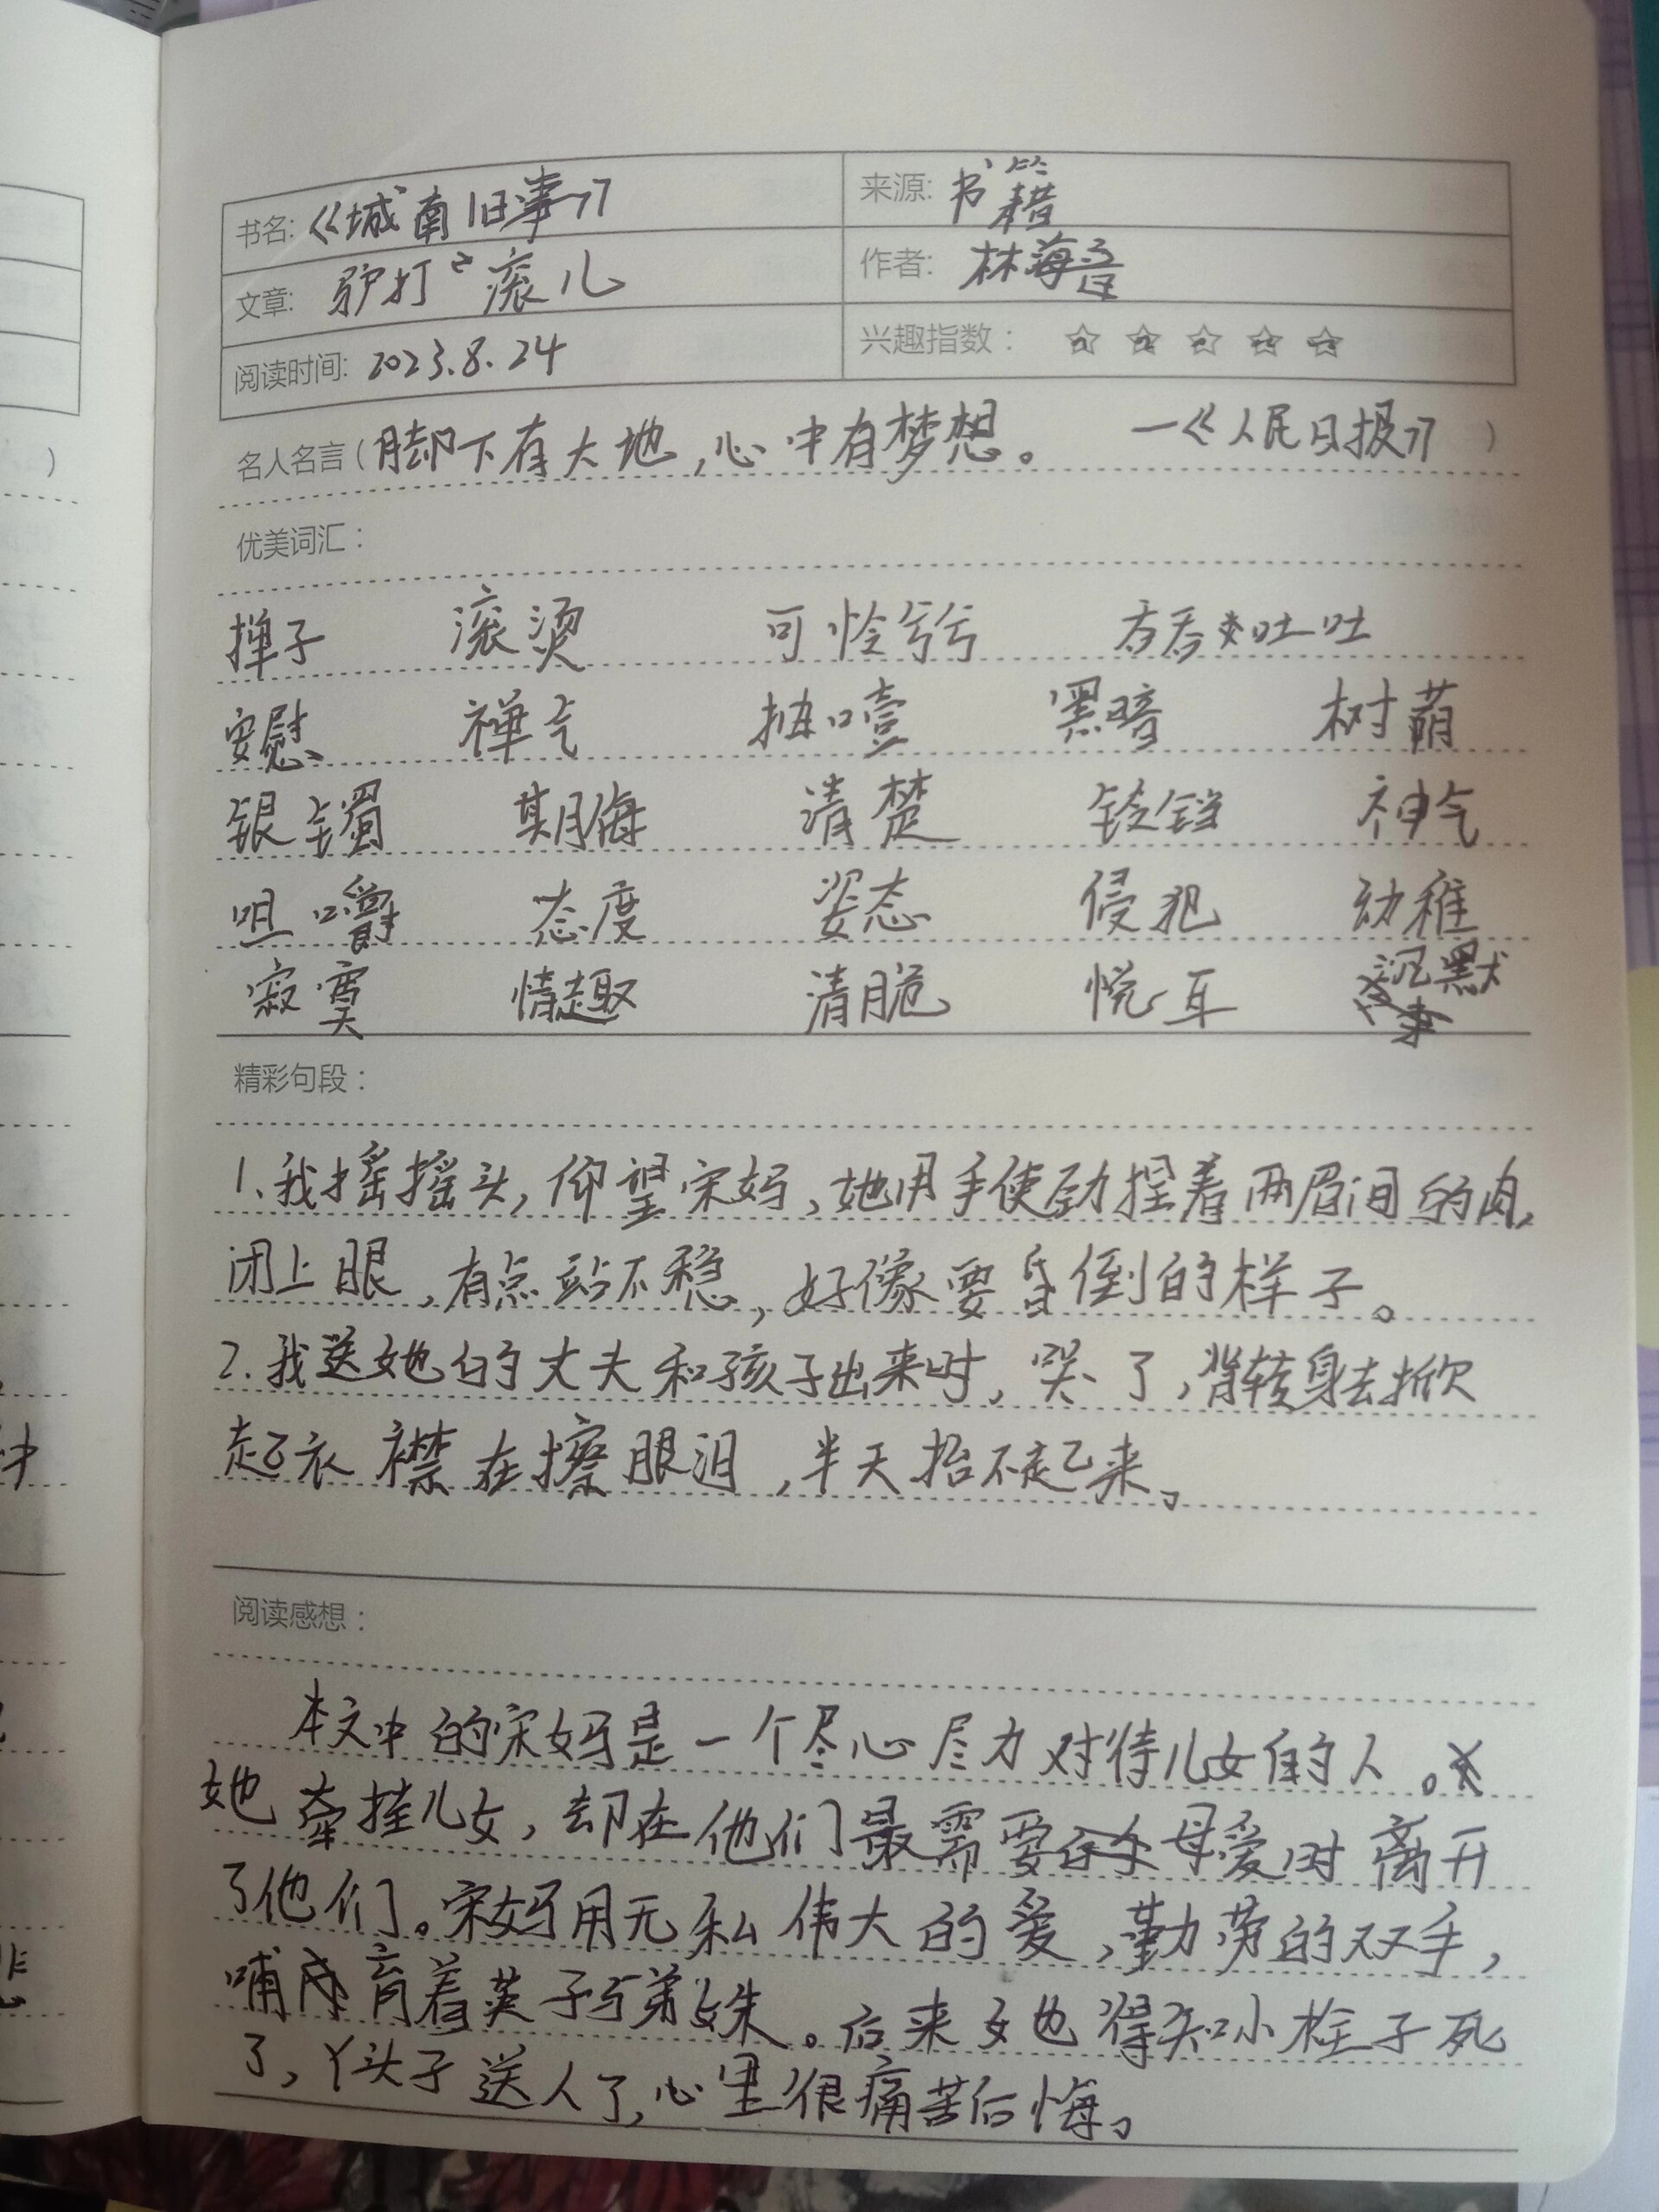 书名: 《城南旧事》
来源: 书籍
文章: 驴打滚儿
作者: 林海音
阅读时间: 2023.8.24
兴趣指数: ☆ ☆ ☆ ☆ ☆
名人名言(脚下有大地,心中有梦想。 —《人民日报》 )
优美词汇:
掸子 滚烫 可怜兮兮 吞吞吐吐
安慰 抽噎 黑暗 树荫
银镯 期悔 清楚 铃铛 神气
咀嚼 态度 姿态 侵犯 幼稚
寂寞 情趣 清脆 悦耳 沉默
精彩句段:
1、我摇摇头,仰望宋妈,她用手使劲捏着两眉间的肉,
闭上眼,有点站不稳,好像要昏倒的样子。
2.我送她的丈夫和孩子出来时,哭了,背转身去掀
起衣襟在擦眼泪,半天抬不起来。
阅读感想:
本文中的宋妈是一个尽心尽力对待儿女的人。
她牵挂儿女,却在他们最需要母爱时离开
了他们。宋妈用无私伟大的爱,勤劳的双手,
哺育着英子与弟妹。后来她得知小栓子死
了,丫头子送人了,心里很痛苦后悔。